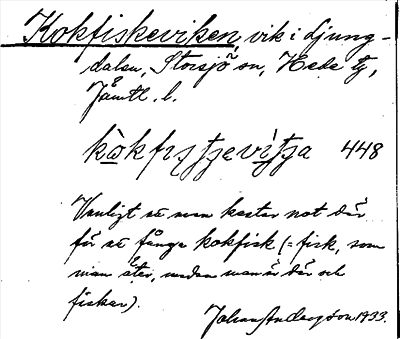 Kokfiskeviken, vik i Ljung-
dalen, Storsjö sn, Hede tg,
Jämtl. l.
kòkfisʃʃevìʃʃa 448
Vanligt är man kastar not där
för att fånga kokfisk (= fisk, som
man äter, medan man är där och
fiskar).
Johan Anderson 1933.